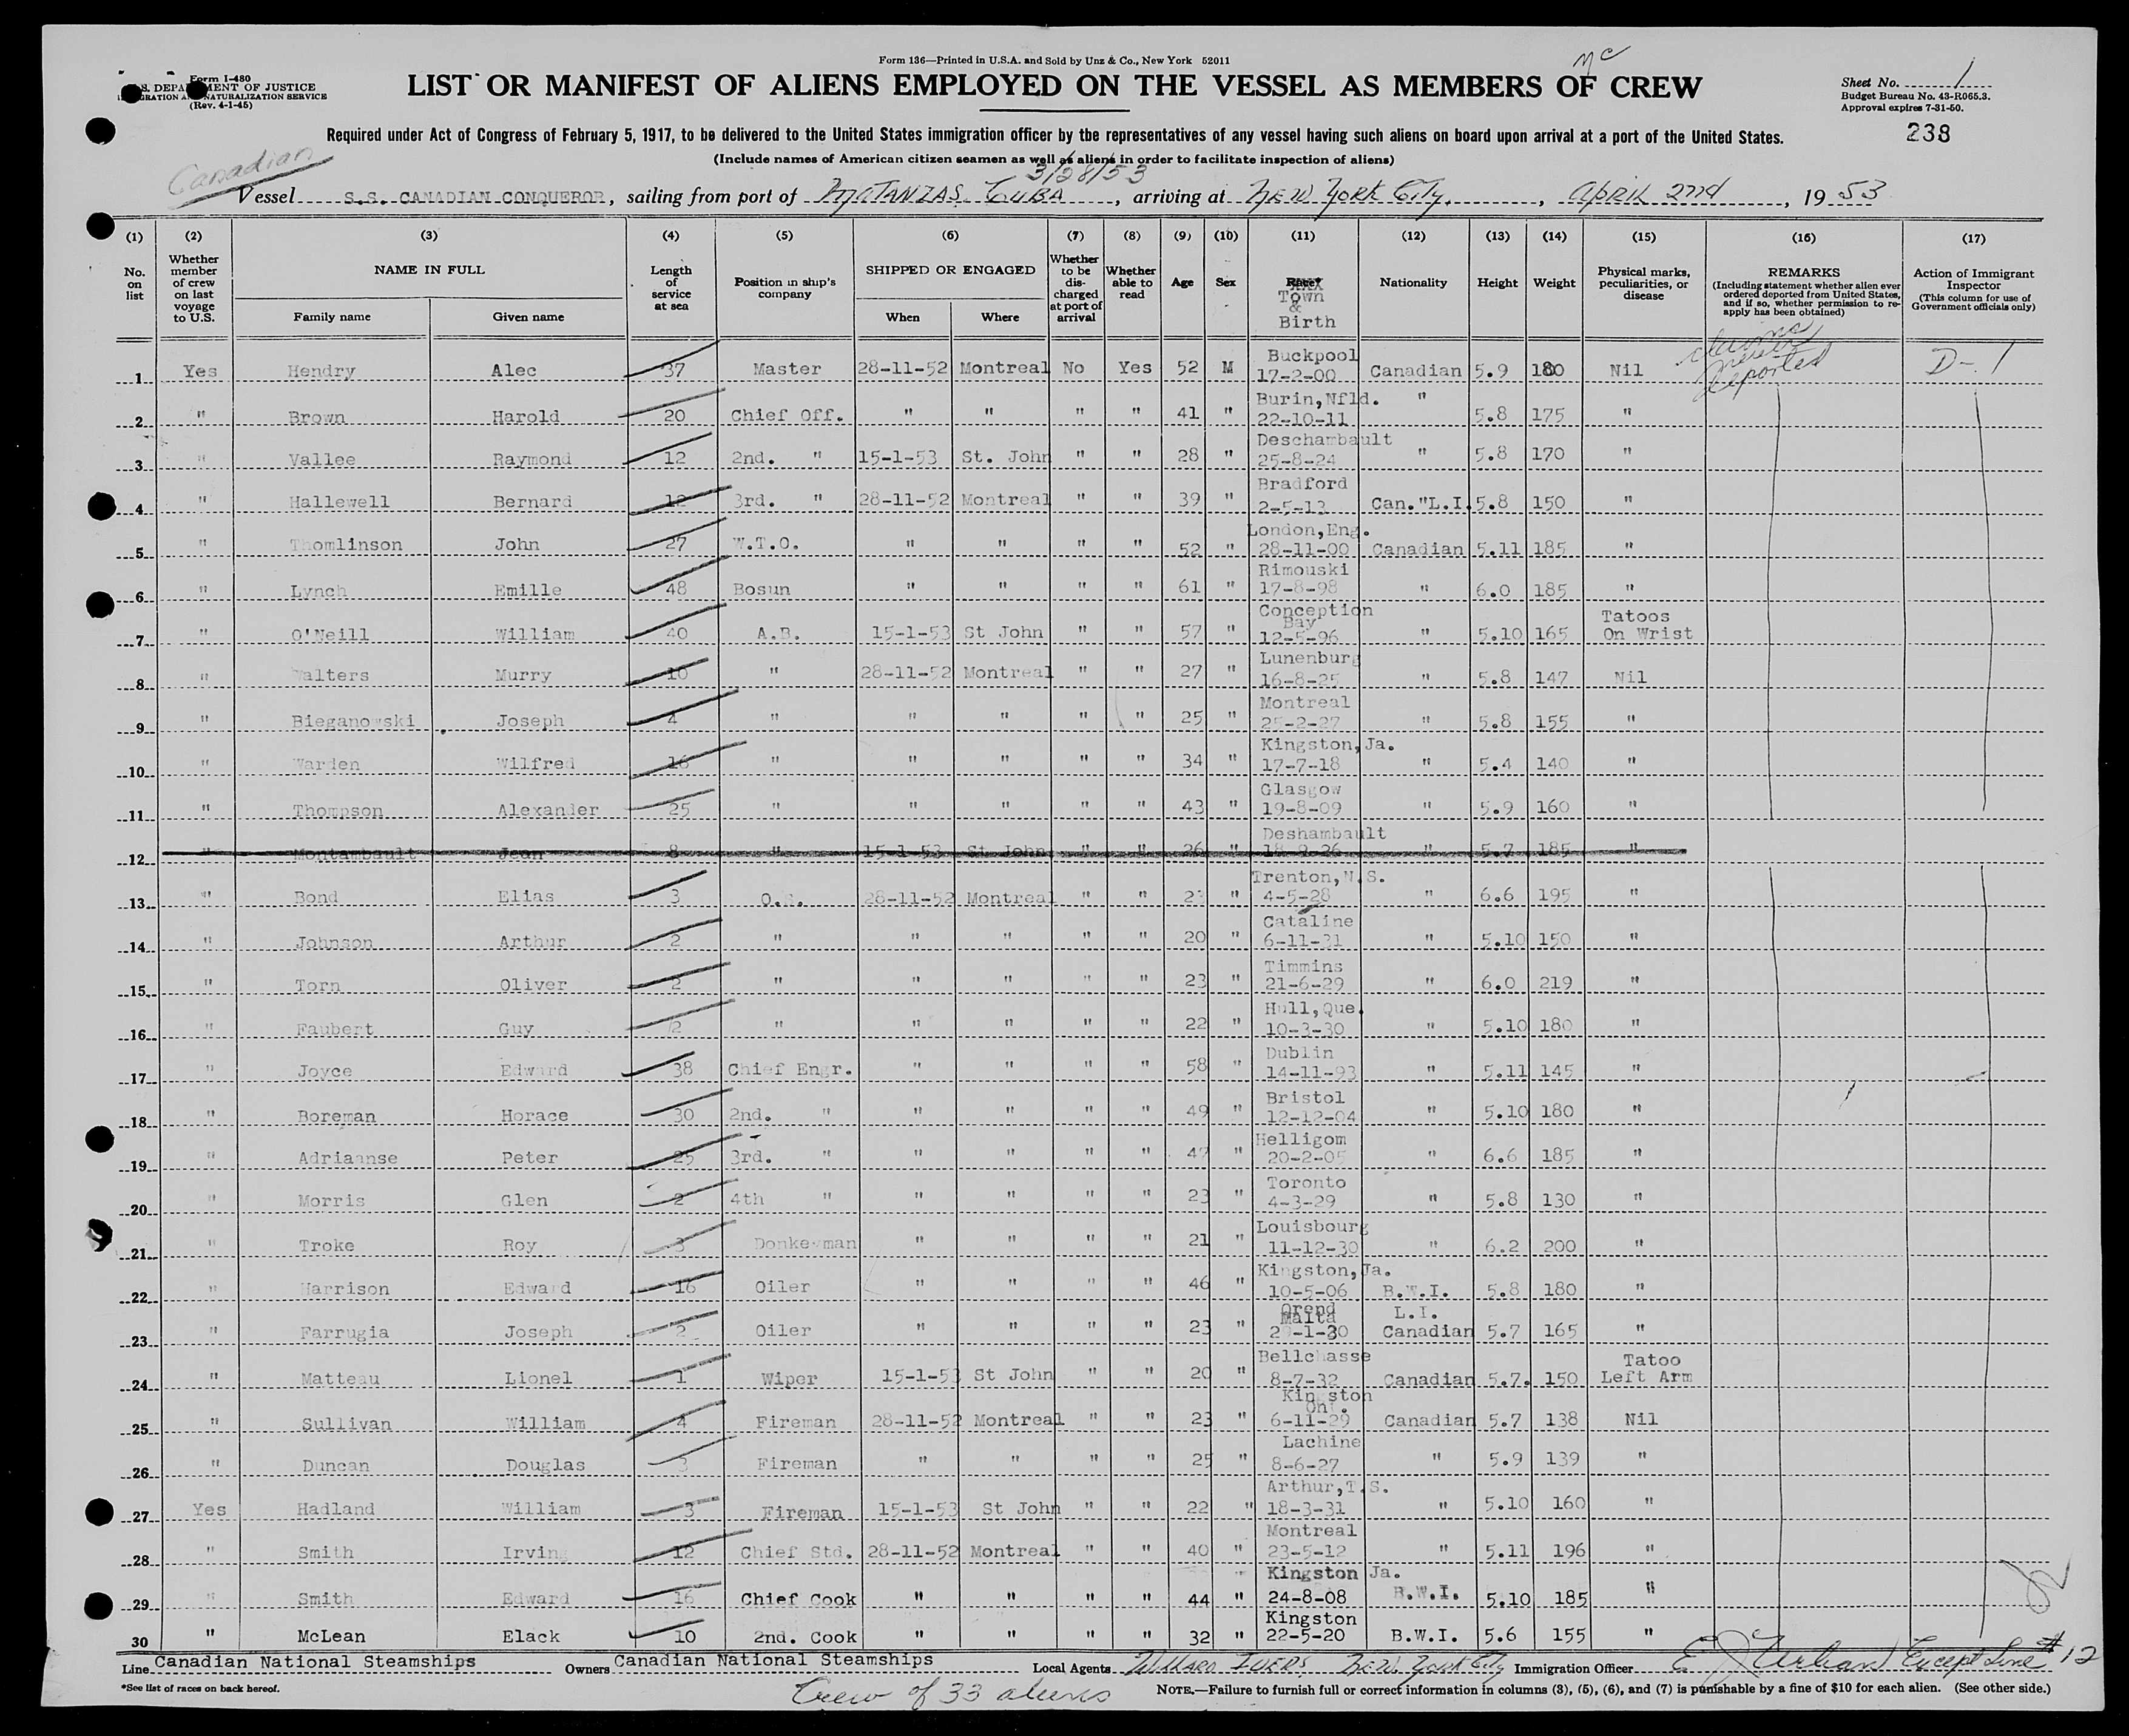 Form 136—Printed in U.S.A. and Sold by Unz & Co., New York 52011
Form I-480
U.S. DEPARTMENT OF JUSTICE
IMMIGRATION AND NATURALIZATION SERVICE
(Rev. 4-1-45)
LIST OR MANIFEST OF ALIENS EMPLOYED ON THE VESSEL AS MEMBERS OF CREW
Sheet No. 1
Budget Bureau No. 43-R065.3.
Approval expires 7-31-50.
238
Required under Act of Congress of February 5, 1917, to be delivered to the United States immigration officer by the representatives of any vessel having such aliens on board upon arrival at a port of the United States.
(Include names of American citizen seamen as well as aliens in order to facilitate inspection of aliens)
Canadian
3/28/53
Vessel S.S. CANADIAN CONQUEROR, sailing from port of MATANZAS, CUBA, arriving at NEW YORK CITY, APRIL 2nd, 1953
(1) (2) (3) (4) (5) (6) (7) (8) (9) (10) (11) (12) (13) (14) (15) (16) (17)
No. on list
Whether member of crew on last voyage to U.S.
NAME IN FULL
Family name Given name
Length of service at sea
Position in ship's company
SHIPPED OR ENGAGED
When Where
Whether to be discharged at port of arrival
Whether able to read
Age
Sex
Town & Birth
Nationality
Height
Weight
Physical marks, peculiarities, or disease
REMARKS
(Including statement whether alien ever ordered deported from United States, and if so, whether permission to reapply has been obtained)
Action of Immigrant Inspector
(This column for use of Government officials only)
1 Yes Hendry Alec 37 Master 28-11-52 Montreal No Yes 52 M Buckpool 17-2-00 Canadian 5.9 180 Nil never deported D-1
2 " Brown Harold 20 Chief Off. " " " " 41 " Burin, Nfld. 22-10-11 " 5.8 175 "
3 " Vallee Raymond 12 2nd. " 15-1-53 St. John " " 28 " Deschambault 25-8-24 " 5.8 170 "
4 " Hallewell Bernard 12 3rd. " 28-11-52 Montreal " " 39 " Bradford 2-5-13 Can. "L.I. 5.8 150 "
5 " Thomlinson John 27 W.T.O. " " " " 52 " London, Eng. 28-11-00 Canadian 5.11 185 "
6 " Lynch Emille 48 Bosun " " " " 61 " Rimouski 17-8-98 " 6.0 185 "
7 " O'Neill William 40 A.B. 15-1-53 St John " " 57 " Conception Bay 12-5-96 " 5.10 165 Tatoos On Wrist
8 " Walters Murry 10 " 28-11-52 Montreal " " 27 " Lunenburg 16-8-25 " 5.8 147 Nil
9 " Bieganowski Joseph 4 " " " " " 25 " Montreal 25-2-27 " 5.8 155 "
10 " Warden Wilfred 16 " " " " " 34 " Kingston, Ja. 17-7-18 " 5.4 140 "
11 " Thompson Alexander 25 " " " " " 43 " Glasgow 19-8-09 " 5.9 160 "
12 " Montambault Jean 8 " 15-1-53 St John " " 26 " Deshambault 18-9-26 " 5.7 185 "
13 " Bond Elias 3 O.S. 28-11-52 Montreal " " 23 " Trenton, N.S. 4-5-28 " 6.6 195 "
14 " Johnson Arthur 2 " " " " " 20 " Cataline 6-11-31 " 5.10 150 "
15 " Torn Oliver 2 " " " " " 23 " Timmins 21-6-29 " 6.0 219 "
16 " Faubert Guy 2 " " " " " 22 " Hull, Que. 10-3-30 " 5.10 180 "
17 " Joyce Edward 38 Chief Engr. " " " " 58 " Dublin 14-11-93 " 5.11 145 "
18 " Boreman Horace 30 2nd. " " " " " 49 " Bristol 12-12-04 " 5.10 180 "
19 " Adriaanse Peter 25 3rd. " " " " " 47 " Helligom 20-2-05 " 6.6 185 "
20 " Morris Glen 2 4th " " " " " 23 " Toronto 4-3-29 " 5.8 130 "
21 " Troke Roy 3 Donkeyman " " " " 21 " Louisbourg 11-12-30 " 6.2 200 "
22 " Harrison Edward 16 Oiler " " " " 46 " Kingston, Ja. 10-5-06 B.W.I. 5.8 180 "
23 " Farrugia Joseph 2 Oiler " " " " 23 " Malta -1-30 L.I. Canadian 5.7 165 "
24 " Matteau Lionel 1 Wiper 15-1-53 St John " " 20 " Bellchasse 8-7-32 Canadian 5.7. 150 Tatoo Left Arm
25 " Sullivan William 4 Fireman 28-11-52 Montreal " " 23 " Kingston Ont. 6-11-29 Canadian 5.7 138 Nil
26 " Duncan Douglas 3 Fireman " " " " 25 " Lachine 8-6-27 " 5.9 139 "
27 Yes Hadland William 3 Fireman 15-1-53 St John " " 22 " Arthur, T.S. 18-3-31 " 5.10 160 "
28 " Smith Irving 12 Chief Std. 28-11-52 Montreal " " 40 " Montreal 23-5-12 " 5.11 196 "
29 " Smith Edward 16 Chief Cook " " " " 44 " Kingston Ja. 24-8-08 B.W.I. 5.10 185 "
30 " McLean Elack 10 2nd. Cook " " " " 32 " Kingston 22-5-20 B.W.I. 5.6 155 "
Line Canadian National Steamships Owners Canadian National Steamships Local Agents NEW YORK City Immigration Officer Except Line #12
*See list of races on back hereof.
Crew of 33 aliens
NOTE.—Failure to furnish full or correct information in columns (3), (5), (6), and (7) is punishable by a fine of $10 for each alien. (See other side.)